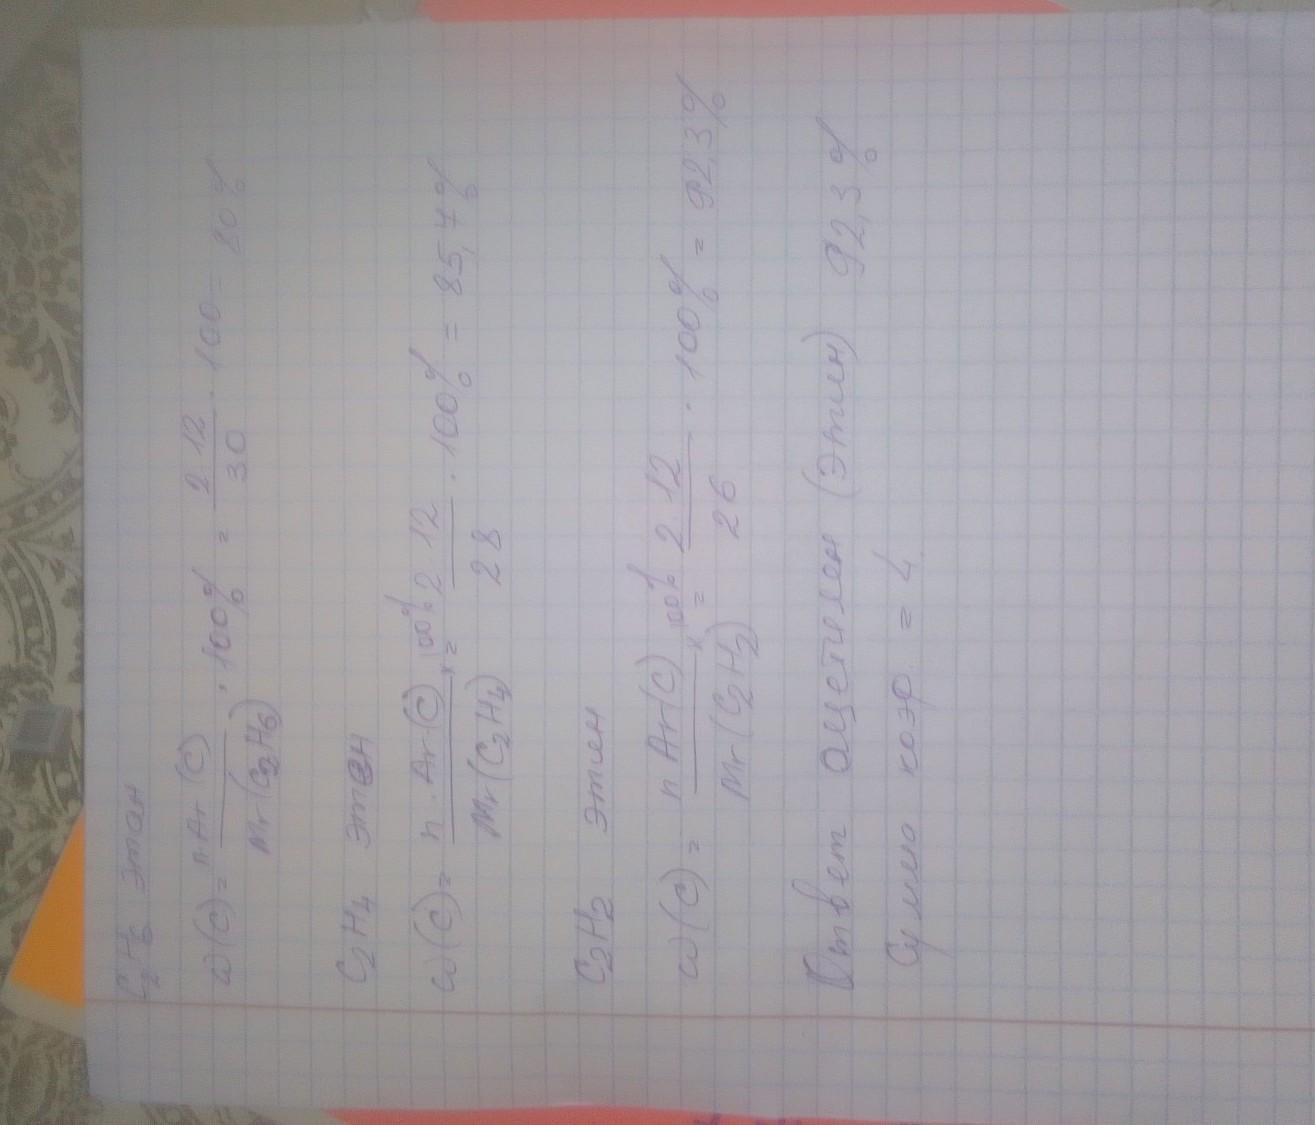 C₂H₆ этан
ω(C) = n Ar(C) / Mr(C₂H₆) · 100% = 2 12 / 30 · 100 = 80%
C₂H₄ этен
ω(C) = n · Ar(C) / Mr(C₂H₄) × 100% = 2 12 / 28 · 100% = 85,7%
C₂H₂ этин
ω(C) = n Ar(C) / Mr(C₂H₂) × 100% = 2 12 / 26 · 100% = 92,3%
Ответ ацетилен (Этин) 92,3%
Сумма коэф. = 4